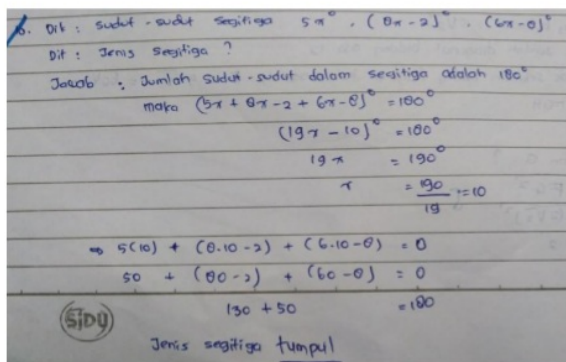 6. Dik : Sudut - sudut segitiga 5x°, (8x-2)°, (6x-8)°
Dit : Jenis segitiga ?
Jawab : Jumlah sudut-sudut dalam segitiga adalah 180°
maka (5x + 8x - 2 + 6x - 8)° = 180°
(19x - 10)° = 180°
19x = 190°
x = 190/19 = 10
⇒ 5(10) + (8.10-2) + (6.10-8) = 0
50 + (80-2) + (60-8) = 0
130 + 50 = 180
SiDU
Jenis segitiga tumpul